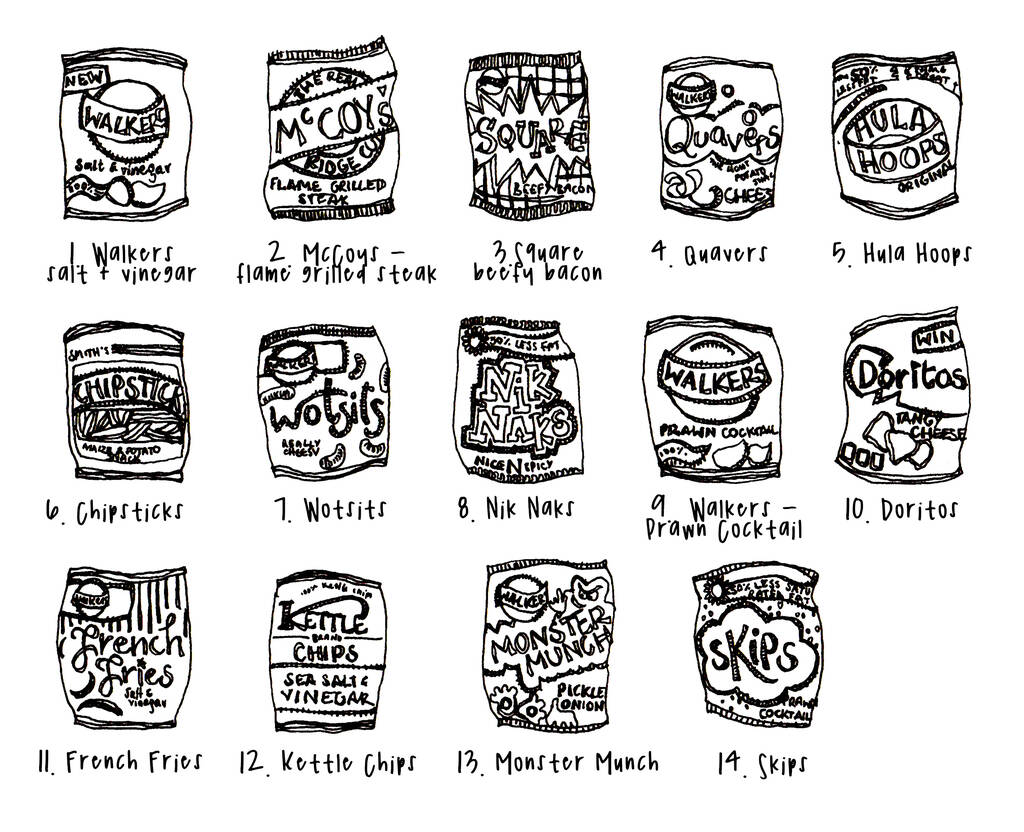 NEW
WALKERS
Salt & vinegar
100%
1 Walkers
salt + vinegar
THE REAL
McCOY'S
RIDGE CUT
FLAME GRILLED
STEAK
2 McCoys –
flame grilled steak
SQUARE
BEEFY BACON
3 Square
beefy bacon
WALKERS
Quavers
THE LIGHT
POTATO
CHEESE
4. Quavers
50%
LESS FAT
HULA
HOOPS
ORIGINAL
5. Hula Hoops
SMITH'S
CHIPSTICK
MAIZE & POTATO
SNACK
6. Chipsticks
WALKERS
Wotsits
REALLY
CHEESY
7. Wotsits
30% LESS FAT
NiK
NAKS
NICE N SPICY
8. Nik Naks
WALKERS
PRAWN COCKTAIL
100%
9. Walkers –
Prawn Cocktail
WIN
Doritos
TANGY
CHEESE
10. Doritos
WALKERS
French
fries
Salt &
vinegar
11. French Fries
KETTLE
BRAND
CHIPS
SEA SALT &
VINEGAR
12. Kettle Chips
WALKERS
MONSTER
MUNCH
PICKLE
ONION
13. Monster Munch
50% LESS SATU
RATED FAT
SKiPS
PRAWN
COCKTAIL
14. Skips